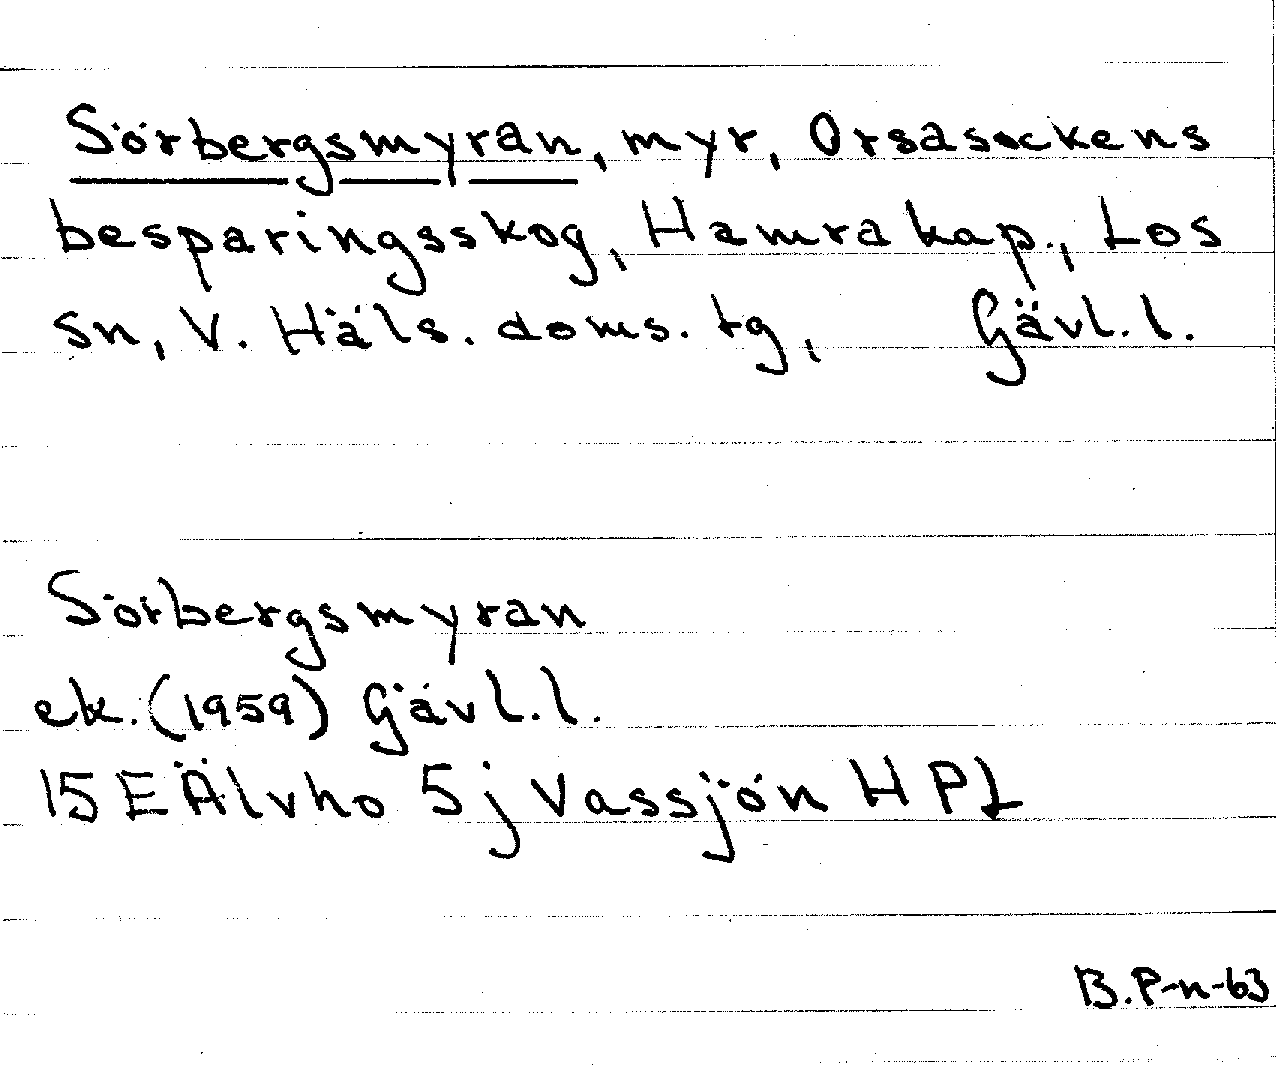 Sörbergsmyran, myr, Orsasockens
besparingsskog, Hamra kap., Los
sn, V. Häls. doms. tg, Gävl. l.
Sörbergsmyran
ek. (1959) Gävl. l.
15 E Älvho 5j Vassjön HPL
B.P-n-63